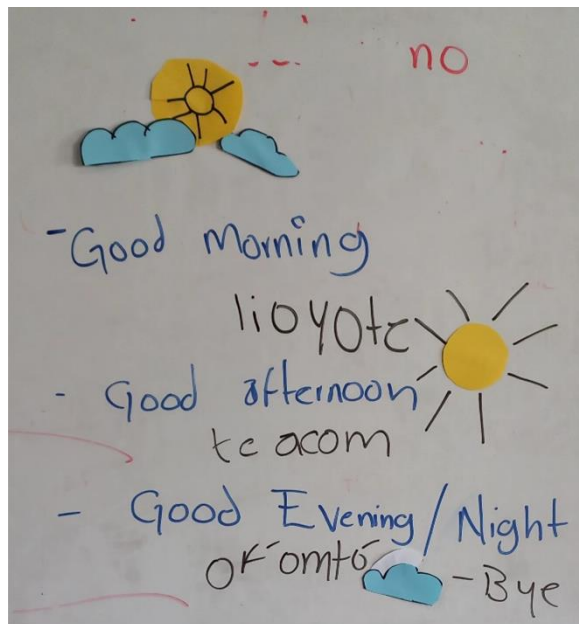 no
-Good Morning
lioyote
- Good afternoon
te acom
- Good Evening/Night
Or omtō
-Bye